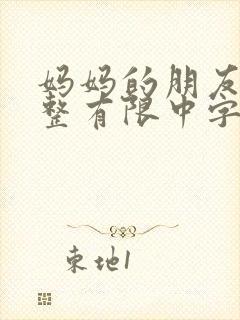 妈妈的朋友
整有限中字
束地1